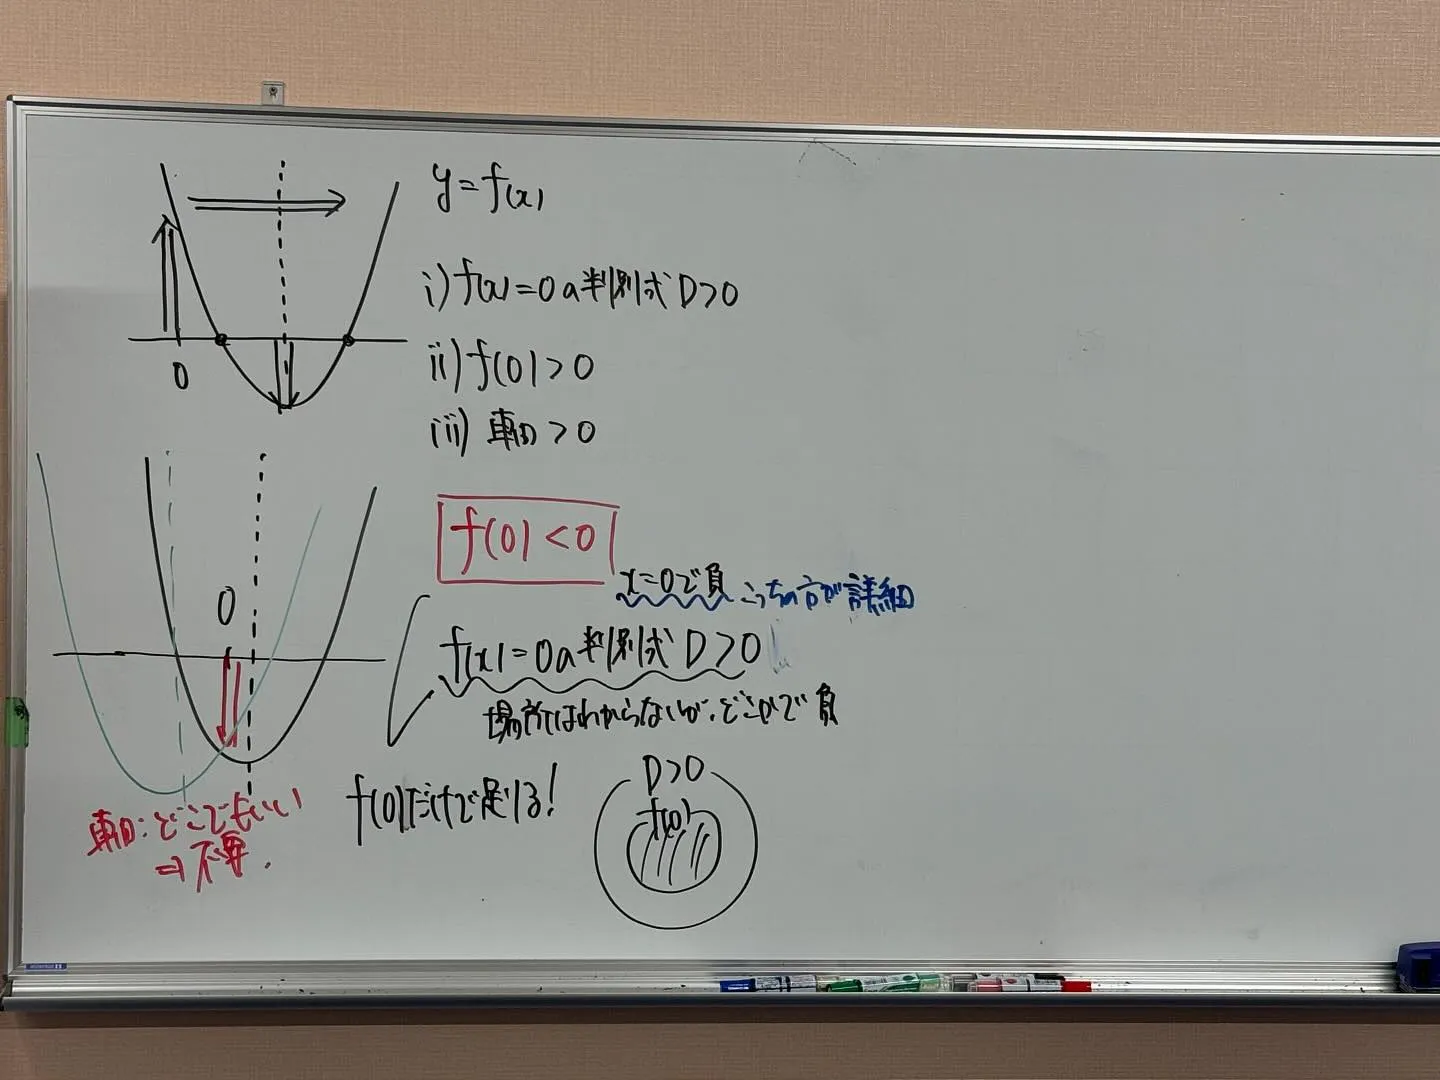 y=f(x)
i) f(x)=0の判別式D>0
0
ii) f(0)>0
iii) 軸>0
f(0)<0
x=0で負 こっちの方が詳細
0
f(x)=0の判別式D>0
場所はわからないが、どこかで負
軸:どこでもいい
⇒不要.
f(0)だけで足りる!
D>0
f(0)